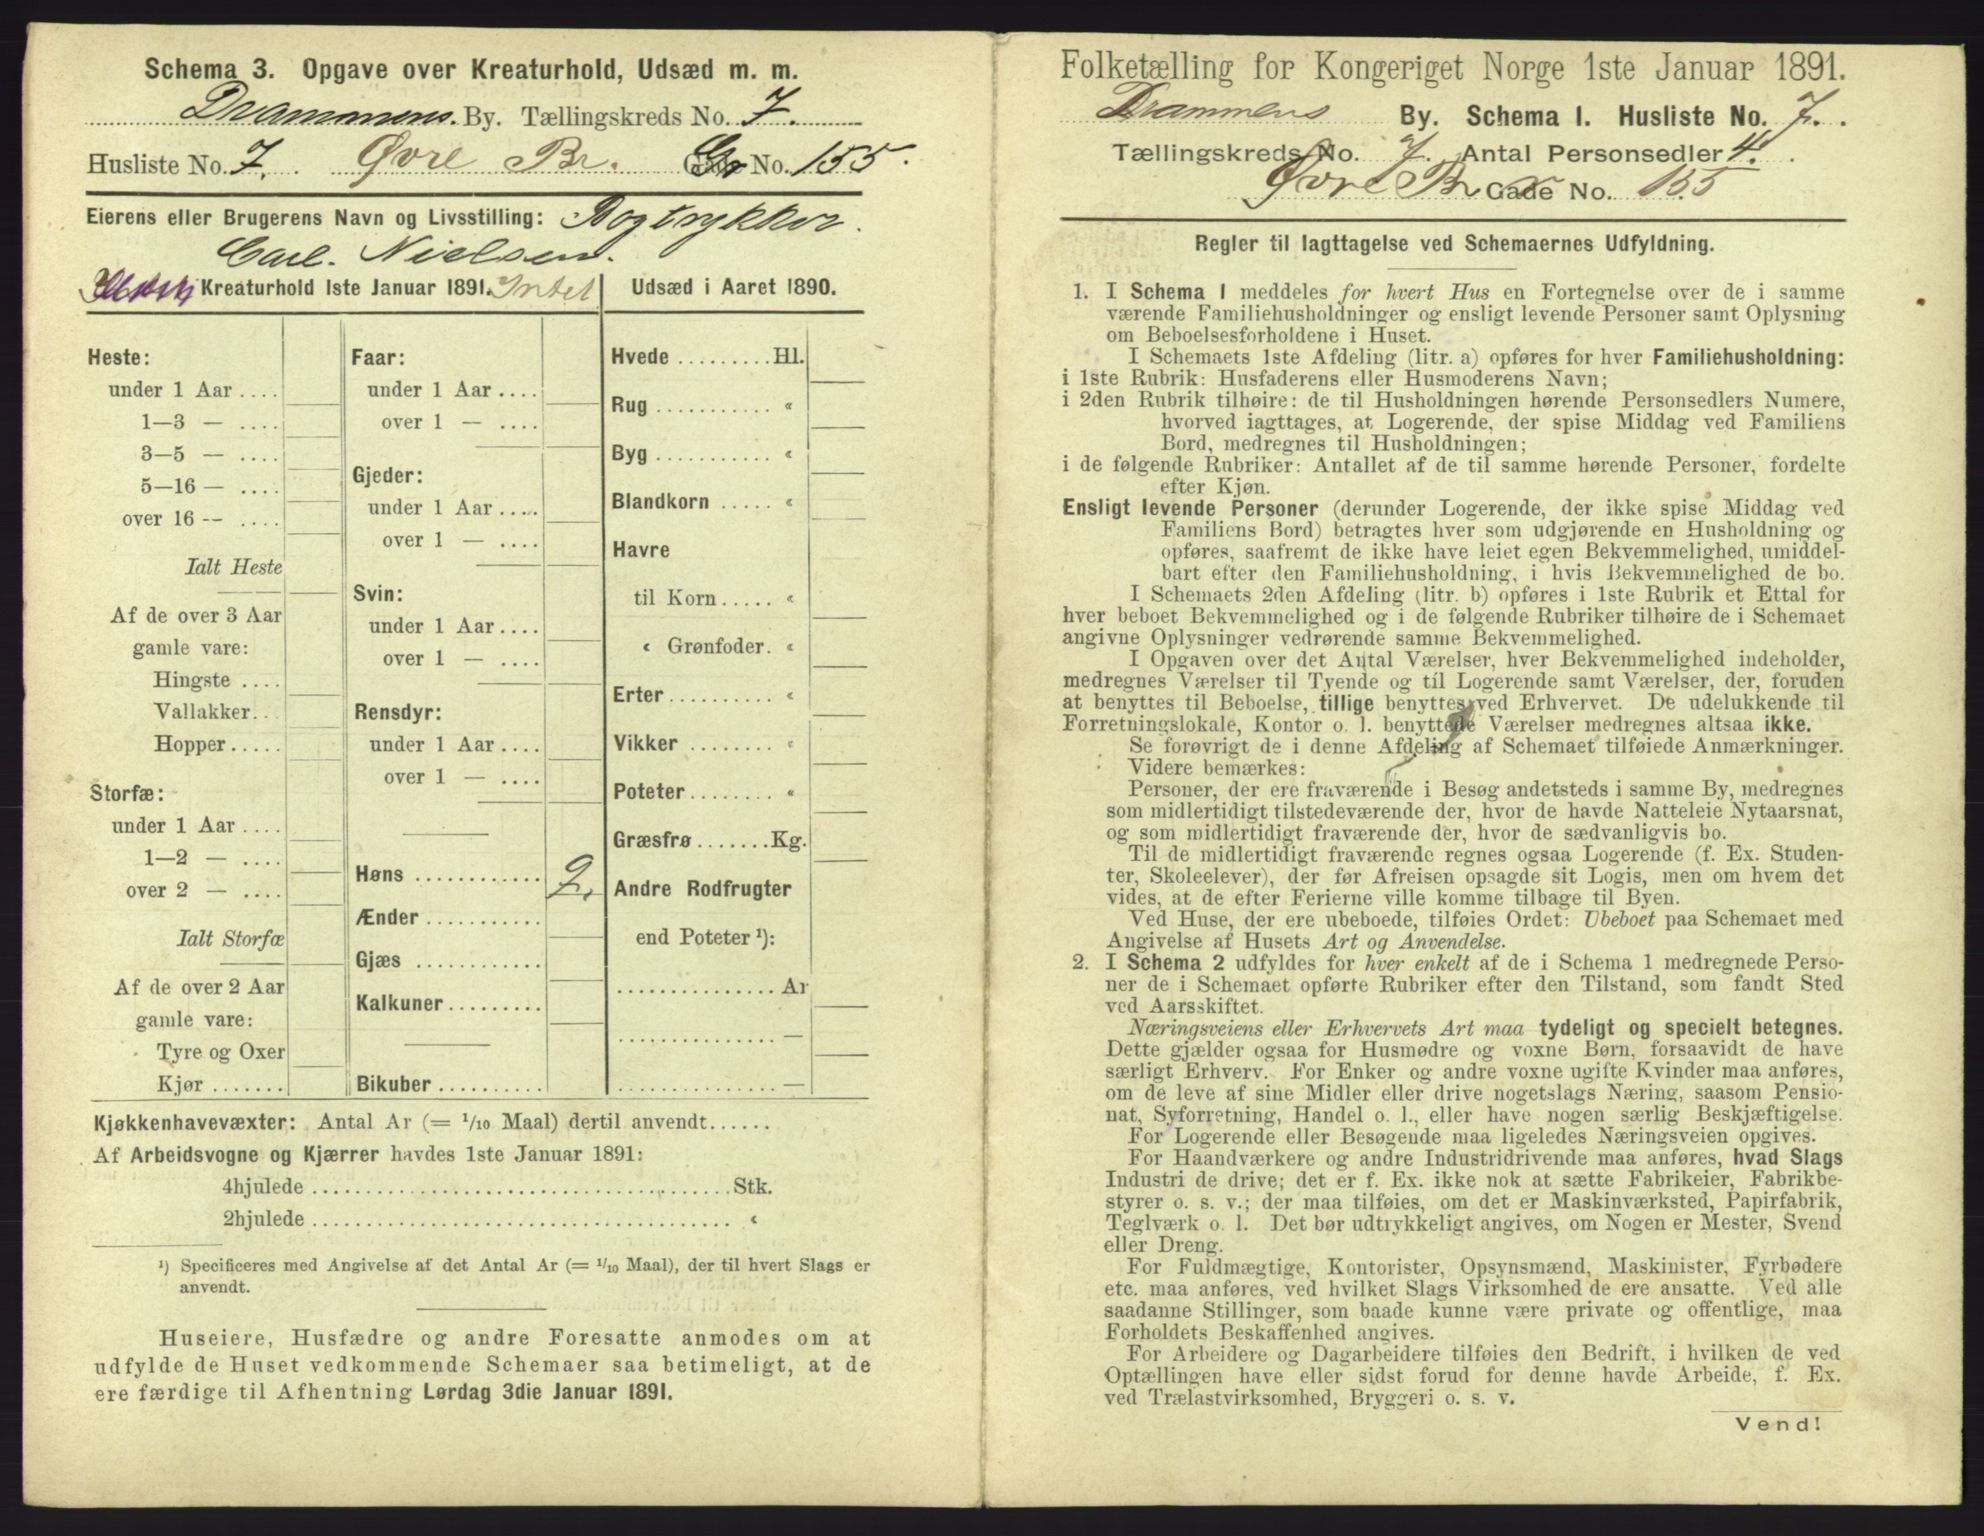 Schema 3. Opgave over Kreaturhold, Udsæd m. m.
Drammens. By. Tællingskreds No. 7.
Husliste No. 7. Øvre Br. Gr No. 155.
Eierens eller Brugerens Navn og Livsstilling: Bogtrykker.
Carl. Nielsen.
Kreaturhold 1ste Januar 1891. Intet
Heste:
under 1 Aar ....
1—3 — ....
3—5 — ....
5—16 — ....
over 16 -- ....
Ialt Heste
Af de over 3 Aar
gamle vare:
Hingste ....
Vallakker...
Hopper.....
Storfæ:
under 1 Aar ....
1—2 — ....
over 2 — ....
Ialt Storfæ
Af de over 2 Aar
gamle vare:
Tyre og Oxer
Kjør .......
Faar:
under 1 Aar ....
over 1 — ....
Gjeder:
under 1 Aar ....
over 1 — ....
Svin:
under 1 Aar ....
over 1 — ....
Rensdyr:
under 1 Aar ....
over 1 — ....
Høns ............ 2.
Ænder ...........
Gjæs ............
Kalkuner.........
Bikuber ..........
Udsæd i Aaret 1890.
Hvede .........Hl.
Rug ........... «
Byg ........... «
Blandkorn ..... «
Havre
til Korn ..... «
« Grønfoder. «
Erter ......... «
Vikker ........ «
Poteter........ «
Græsfrø .......Kg.
Andre Rodfrugter
end Poteter ¹):
............... Ar
............... —
............... —
Kjøkkenhavevæxter: Antal Ar (= 1/10 Maal) dertil anvendt......
Af Arbeidsvogne og Kjærrer havdes 1ste Januar 1891:
4hjulede ........................................Stk.
2hjulede ........................................ «
¹) Specificeres med Angivelse af det Antal Ar (= 1/10 Maal), der til hvert Slags er
anvendt.
Huseiere, Husfædre og andre Foresatte anmodes om at
udfylde de Huset vedkommende Schemaer saa betimeligt, at de
ere færdige til Afhentning Lørdag 3die Januar 1891.
Folketælling for Kongeriget Norge 1ste Januar 1891.
Drammens By. Schema I. Husliste No. 7.
Tællingskreds No. 7. Antal Personsedler 4.
Øvre Br Gade No. 155
Regler til Iagttagelse ved Schemaernes Udfyldning.
1. I Schema I meddeles for hvert Hus en Fortegnelse over de i samme
værende Familiehusholdninger og ensligt levende Personer samt Oplysning
om Beboelsesforholdene i Huset.
I Schemaets 1ste Afdeling (litr. a) opføres for hver Familiehusholdning:
i 1ste Rubrik: Husfaderens eller Husmoderens Navn;
i 2den Rubrik tilhøire: de til Husholdningen hørende Personsedlers Numere,
hvorved iagttages, at Logerende, der spise Middag ved Familiens
Bord, medregnes til Husholdningen;
i de følgende Rubriker: Antallet af de til samme hørende Personer, fordelte
efter Kjøn.
Ensligt levende Personer (derunder Logerende, der ikke spise Middag ved
Familiens Bord) betragtes hver som udgjørende en Husholdning og
opføres, saafremt de ikke have leiet egen Bekvemmelighed, umiddel-
bart efter den Familiehusholdning, i hvis Bekvemmelighed de bo.
I Schemaets 2den Afdeling (litr. b) opføres i 1ste Rubrik et Ettal for
hver beboet Bekvemmelighed og i de følgende Rubriker tilhøire de i Schemaet
angivne Oplysninger vedrørende samme Bekvemmelighed.
I Opgaven over det Antal Værelser, hver Bekvemmelighed indeholder,
medregnes Værelser til Tyende og til Logerende samt Værelser, der, foruden
at benyttes til Beboelse, tillige benyttes ved Erhvervet. De udelukkende til
Forretningslokale, Kontor o. l. benyttede Værelser medregnes altsaa ikke.
Se forøvrigt de i denne Afdeling af Schemaet tilføiede Anmærkninger.
Videre bemærkes:
Personer, der ere fraværende i Besøg andetsteds i samme By, medregnes
som midlertidigt tilstedeværende der, hvor de havde Natteleie Nytaarsnat,
og som midlertidigt fraværende der, hvor de sædvanligvis bo.
Til de midlertidigt fraværende regnes ogsaa Logerende (f. Ex. Studen-
ter, Skoleelever), der før Afreisen opsagde sit Logis, men om hvem det
vides, at de efter Ferierne ville komme tilbage til Byen.
Ved Huse, der ere ubeboede, tilføies Ordet: Ubeboet paa Schemaet med
Angivelse af Husets Art og Anvendelse.
2. I Schema 2 udfyldes for hver enkelt af de i Schema 1 medregnede Perso-
ner de i Schemaet opførte Rubriker efter den Tilstand, som fandt Sted
ved Aarsskiftet.
Næringsveiens eller Erhvervets Art maa tydeligt og specielt betegnes.
Dette gjælder ogsaa for Husmødre og voxne Børn, forsaavidt de have
særligt Erhverv. For Enker og andre voxne ugifte Kvinder maa anføres,
om de leve af sine Midler eller drive nogetslags Næring, saasom Pensio-
nat, Syforretning, Handel o. l., eller have nogen særlig Beskjæftigelse.
For Logerende eller Besøgende maa ligeledes Næringsveien opgives.
For Haandværkere og andre Industridrivende maa anføres, hvad Slags
Industri de drive; det er f. Ex. ikke nok at sætte Fabrikeier, Fabrikbe-
styrer o. s. v.; der maa tilføies, om det er Maskinværksted, Papirfabrik,
Teglværk o. l. Det bør udtrykkeligt angives, om Nogen er Mester, Svend
eller Dreng.
For Fuldmægtige, Kontorister, Opsynsmænd, Maskinister, Fyrbødere
etc. maa anføres, ved hvilket Slags Virksomhed de ere ansatte. Ved alle
saadanne Stillinger, som baade kunne være private og offentlige, maa
Forholdets Beskaffenhed angives.
For Arbeidere og Dagarbeidere tilføies den Bedrift, i hvilken de ved
Optællingen have eller sidst forud for denne havde Arbeide, f. Ex.
ved Trælastvirksomhed, Bryggeri o. s. v.
Vend!